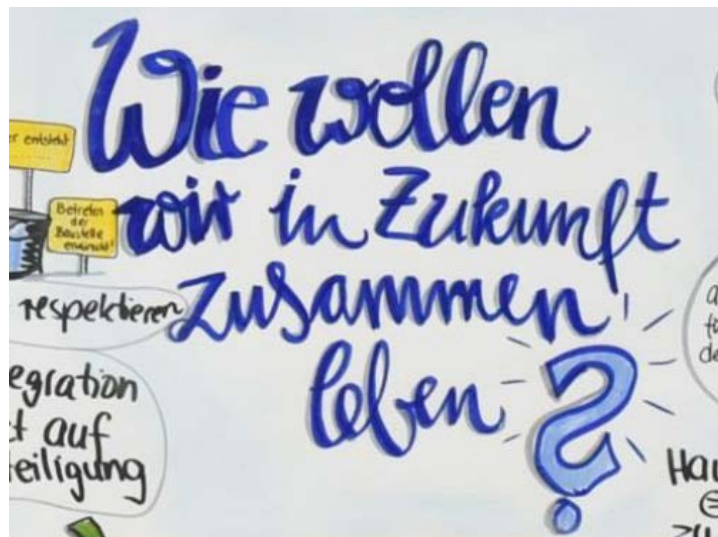 Wie wollen
wir in Zukunft
zusammen
leben?
er entsteht
Betreten
der
Baustelle
erwünscht!
respektieren
egration
t auf
eiligung
Hau
zu